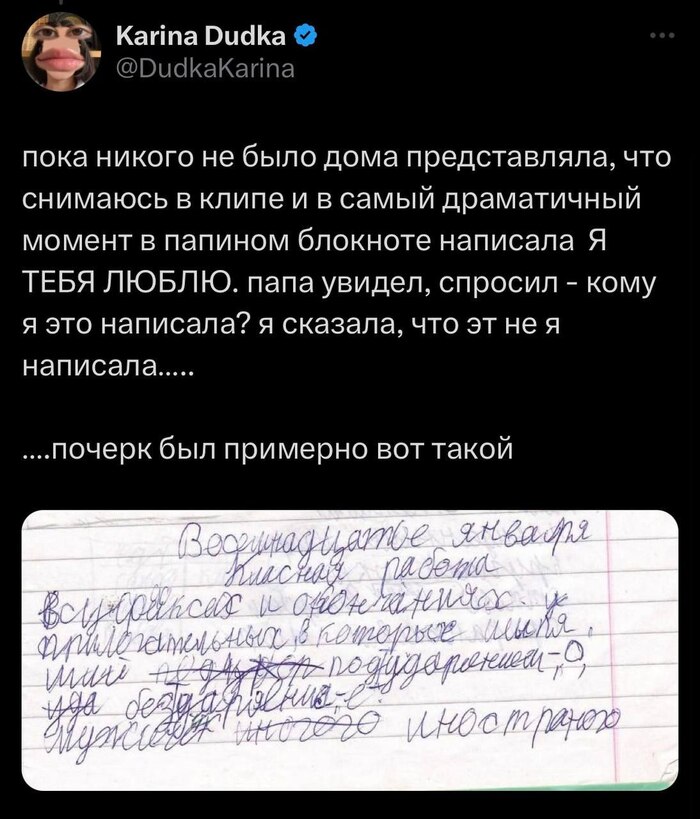 Karina Dudka
@DudkaKarina
пока никого не было дома представляла, что
снимаюсь в клипе и в самый драматичный
момент в папином блокноте написала Я
ТЕБЯ ЛЮБЛЮ. папа увидел, спросил - кому
я это написала? я сказала, что эт не я
написала.....
....почерк был примерно вот такой
января
работа
и окончаниях
прилагательных в которых
под ударением-,О,
иностраного